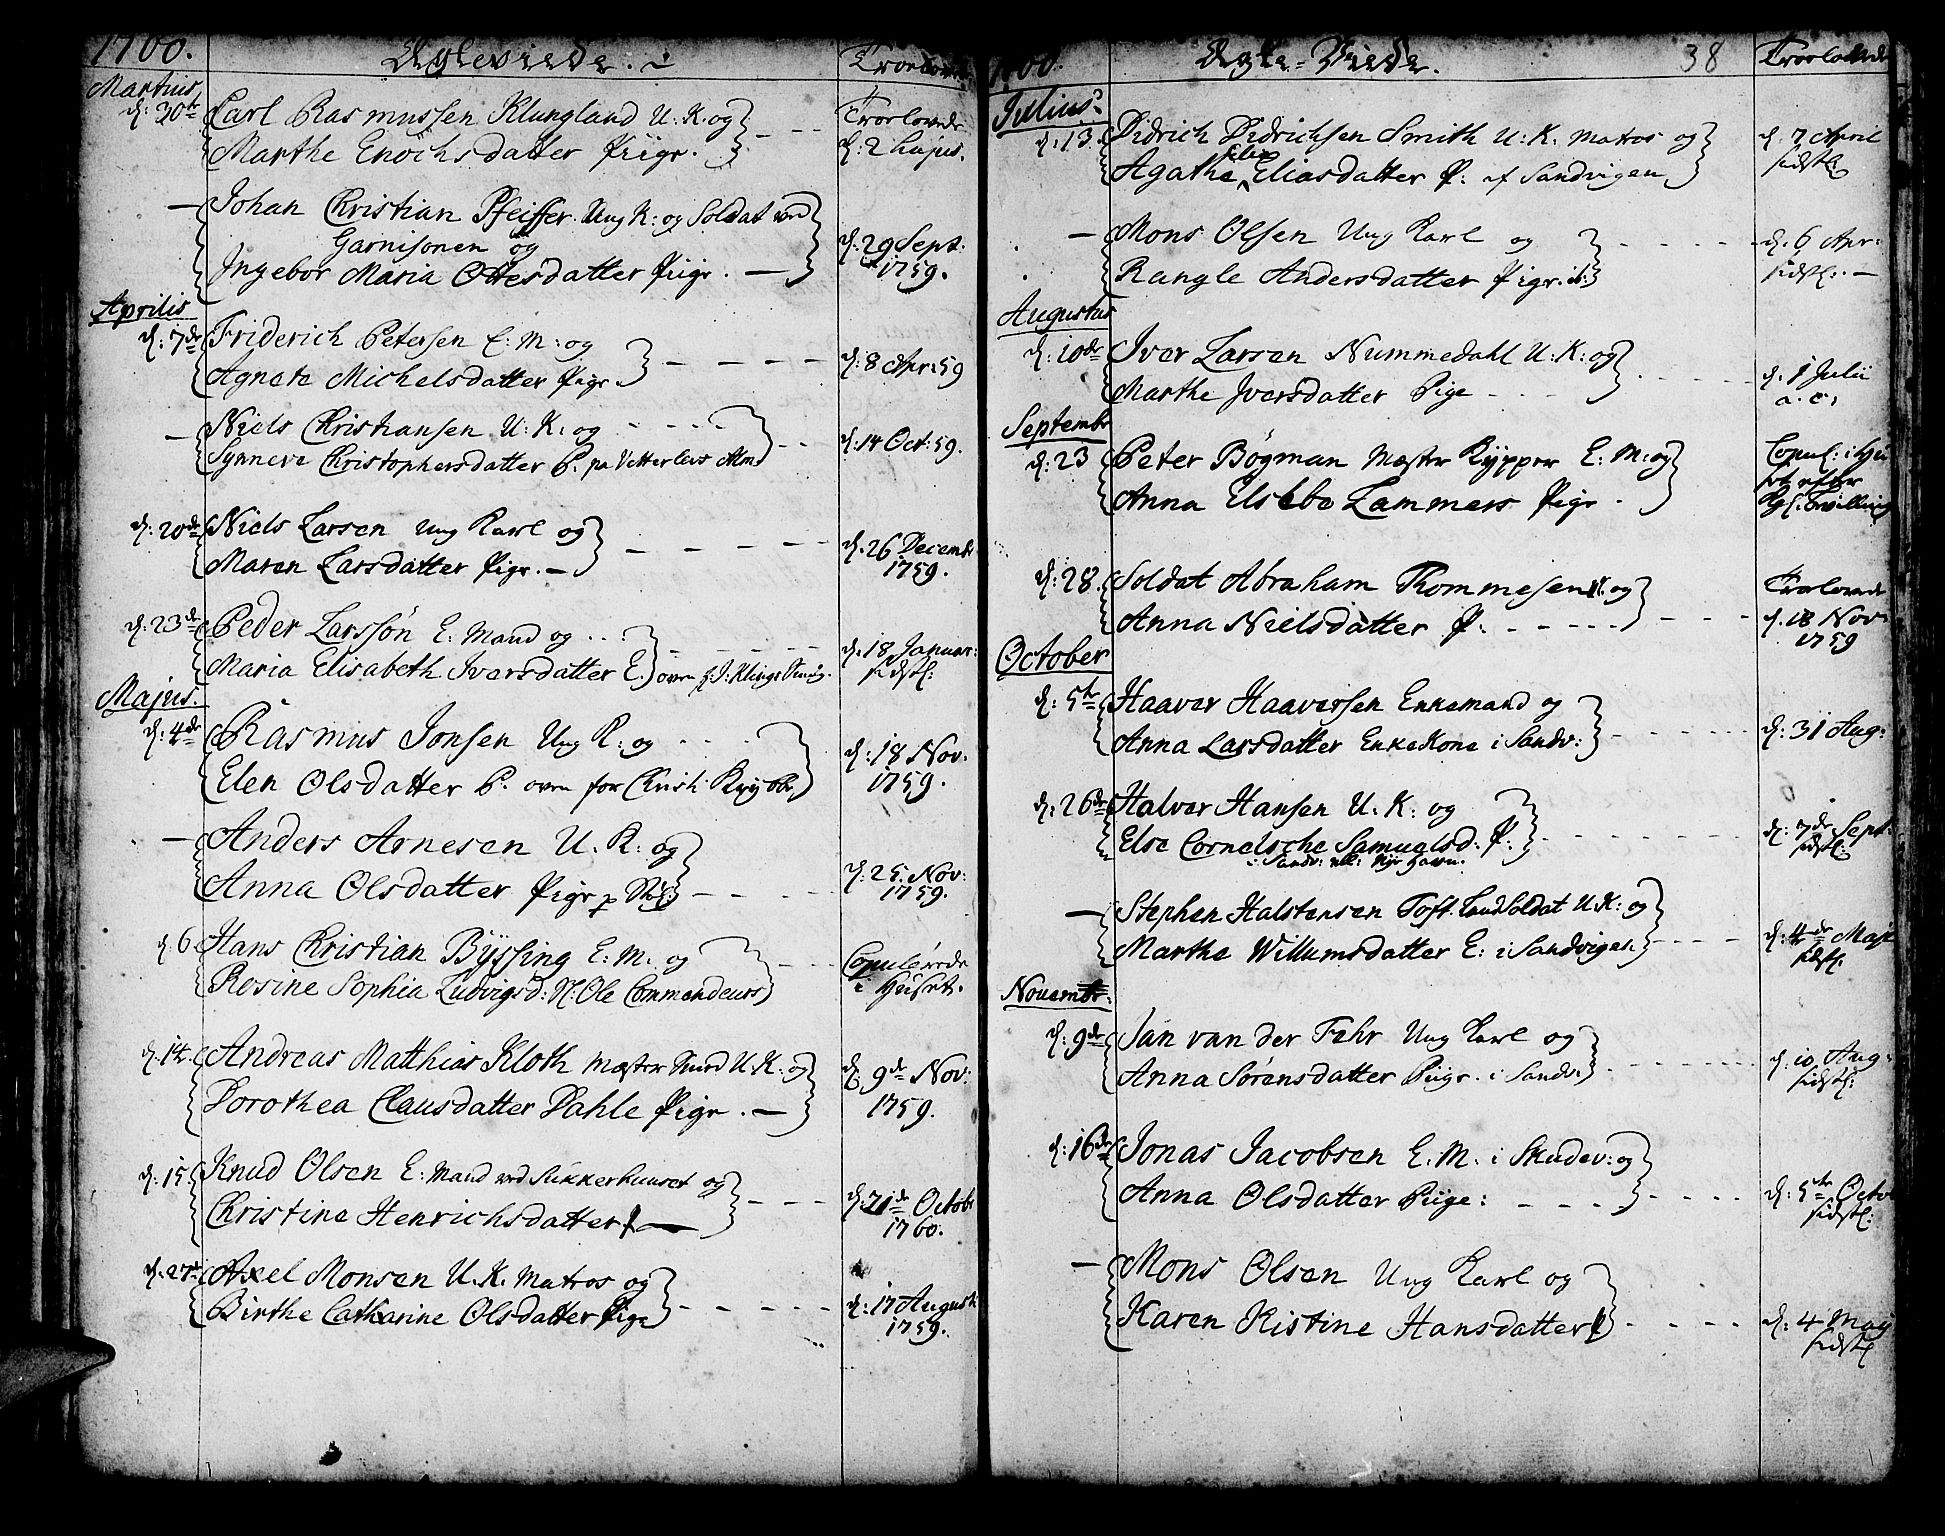 1760.
Ægteviede. i
Troelovede
Martius
d: 30te Carl Rasmussen Klungland U. K. og
Marthe Enochsdatter Piige.
Troelovede
d: 2 hujus.
— Johan Christian Pfeiffer. Ung K: og Soldat ved
Garnisonen og
Ingebor Maria Ottesdatter Piige. —
d: 29 Sept:
1759.
Aprilis
d: 7de Friderich Petersen E: M: og
Agneta Michelsdatter Pige.
d: 8 Apr: 59
— Niels Christiansen U: K: og
Synneve Christophersdatter P. pa Vetterlevs Alm:
d: 14 Oct: 59.
d: 20de Niels Larsen Ung Karl og
Maren Larsdatter Pige. —
d. 26 Decembr
1759.
d: 23de Peder Larssøn E: Mand og
Maria Elisabeth Iversdatter E.
d: 18 Januar:
sidstl:
Majus.
d: 4de Rasmus Jonsen Ung K: og
Elen Olsdatter P. oven for Christi Krybbe
d: 18 Nov.
1759.
— Anders Arnesen U. K: og
Anna Olsdatter Pige
d: 25. Nov:
1759.
d 6 Hans Christian Byssing E: M. og
Rosine Sophia Ludvigsd: N: Ole Commendeurs
Copulerede
i Huset.
d. 14. Andreas Matthias Kloth Mæster U: K: og
Dorothea Clausdatter Dahle Pige. —
d. 9de Nov:
1759.
d: 15 Knud Olsen E: Mand ved Sukkerhuuset og
Christine Henrichsdatter P —
d: 21de Octobr
1760.
d. 27de Axel Monsen U. K. Matros og
Birthe Catharine Olsdatter Pige
d: 17 August:
1759.
1760.
Ægte-Viede.
38
Troelovede
Julius.
d: 13. Didrich Didrichsen Smith U: K. Matros og
Agatha Eliasdatter P: af Sandvigen
d. 7 April
sidstl:
— Mons Olsen Ung Karl og
Rangle Andersdatter Pige. ib:
d. 6 Apr:
sidstl. —
Augustus
d: 10de Iver Larsen Nummedahl U: K: og
Marthe Iversdatter Pige
d. 1 Julii
a. c.
Septembr
d: 23 Peter Bøgman Mæster Kypper E: M: og
Anna Elsebe Lammers Pige
Copul: i Hu
set efter
Kgl: Bevilling
d: 28. Soldat Abraham Rommesen og
Anna Nielsdatter P.
Troelovede
d. 18 Nov:
1759
October
d: 5te Haaver Haaversen Enkemand og
Anna Larsdatter Enkekone i Sandv:
d: 31 Aug:
d: 26de Halver Hansen U. K: og
Else Cornelsche Samuelsd: P:
i Sandv:
d: 7de Sept:
sidstl:
— Stephen Halstensen Toft. Land Soldat U: K: og
Marthe Willumsdatter E: i Sandvigen.
d. 4de Maji
sidstl.
Novembr:
d: 9de Jan van der Fehr Ung Karl og
Anna Sørensdatter Piige. i Sandv:
d. 10. Aug:
sidstl:
d: 16de Jonas Jacobsen E. M. i Skudev: og
Anna Olsdatter Piige:
d: 5te Octobr
sidstl:
— Mons Olsen Ung Karl og
Karen Kistine Hansdatter P
d: 4 Maij
sidstl